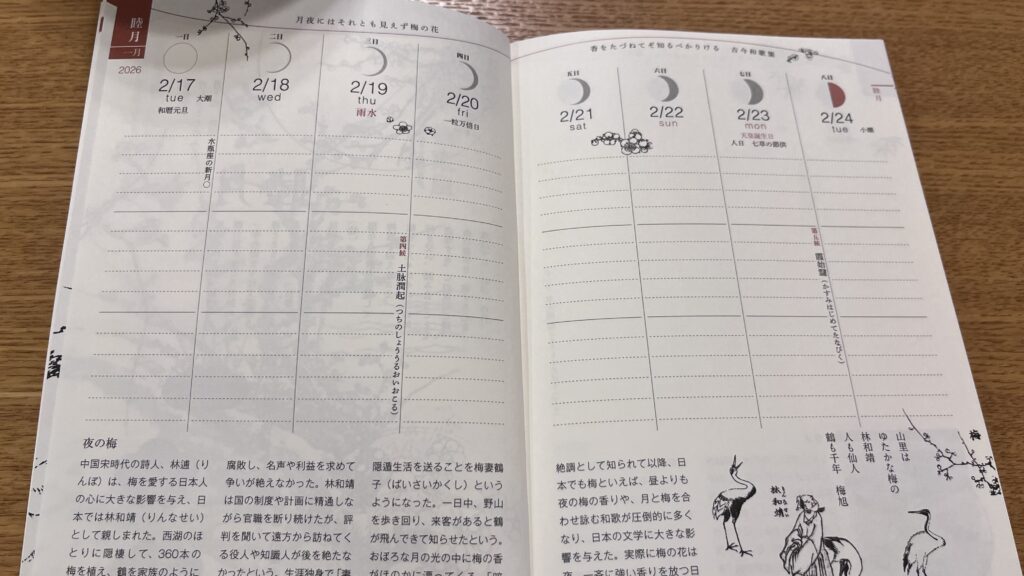 睦月
一月
2026
月夜にはそれとも見えず梅の花
一日
2/17
tue 大潮
和暦元旦
水瓶座の新月〇
二日
2/18
wed
三日
2/19
thu
雨水
第四候 土脉潤起(つちのしょううるおいおこる)
四日
2/20
fri
一粒万倍日
夜の梅
中国宋時代の詩人、林逋(り
んぽ)は、梅を愛する日本人
の心に大きな影響を与え、日
本では林和靖(りんなせい)
として親しまれた。西湖のほ
とりに隠棲して、360本の
梅を植え、鶴を家族のように
腐敗し、名声や利益を求めて
争いが絶えなかった。林和靖
は国の制度や計画に精通しな
がら官職を断り続けたが、評
判を聞いて遠方から訪ねてく
る役人や知識人が後を絶たな
かったという。生涯独身で「妻
隠遁生活を送ることを梅妻鶴
子(ばいさいかくし)という
ようになった。一日中、野山
を歩き回り、来客があると鶴
が飛んできて知らせたという。
おぼろな月の光の中に梅の香
がほのかに漂ってくる「暗
香をたづねてぞ知るべかりける 古今和歌集
睦月
五日
2/21
sat
六日
2/22
sun
七日
2/23
mon
天皇誕生日
人日 七草の節供
八日
2/24
tue 小潮
第五候 霞始靆(かすみはじめてたなびく)
絶調として知られて以降、日
本でも梅といえば、昼よりも
夜の梅の香りや、月と梅を合
わせ詠む和歌が圧倒的に多く
なり、日本の文学に大きな影
響を与えた。実際に梅の花は
夜、一斉に強い香りを放つ日
山里は
ゆたかな梅の
林和靖
人も仙人
鶴も千年 梅旭
林和靖
梅